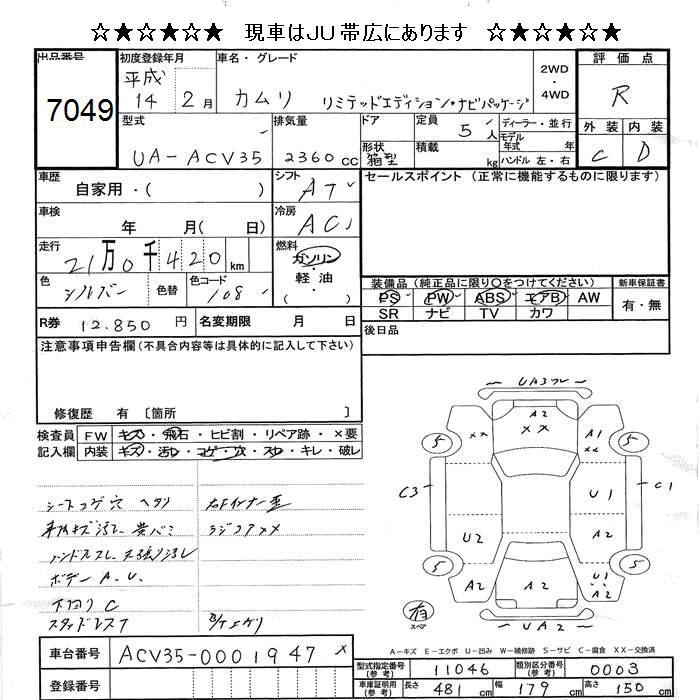 ☆★☆★☆ 現車はJU帯広にあります ☆★☆★☆
出品番号 7049
初度登録年月 平成 14 2月
車名・グレード カムリ リミテッドエディション・ナビパッケージ
2WD・4WD
評価点 R
外装 C 内装 D
型式 UA-ACV35
排気量 2360cc
ドア 形状 箱型
定員 5人
積載 kg
ディーラー・並行
モデル年式 年式
ハンドル 左・右
車歴 自家用・( )
シフト AT
セールスポイント (正常に機能するものに限ります)
車検 年 月( 日)
冷房 AC
走行 21万0千420km
燃料 ガソリン・軽油・( )
色 シルバー 色替 色コード 1C8
装備品 (純正品に限り○をつけてください)
新車保証書 有・無
PS PW ABS エアB AW
SR ナビ TV カワ
R券 12.850円 名変期限 月 日
後日品
注意事項申告欄(不具合内容等は具体的に記入して下さい)
修復歴 有 〔箇所 〕
検査員記入欄
FW キズ・飛石・ヒビ割・リペア跡・×要
内装 キズ・汚レ・コゲ・穴・スレ・キレ・破レ
シートコゲ穴 ヘタリ
ハンドルスレ 天張り汚レ
ボデー A.U.
下回りC
スタッドレス7
右Fインナー歪
ラジコアメメ
UA3フレ
A2
××
××
A1
××
5
5
C3
C1
U1
U2
A2
5
5
A2
A2
U1
A2
有 スペア
UA2
A-キズ E-エクボ U-凹み W-補修跡 S-サビ C-腐食 XX-交換済
車台番号 ACV35-0001947
登録番号
型式指定番号(参考) 11046 類別区分番号(参考) 0003
車庫証明用(参考) 長さ 481cm 幅 179cm 高さ 150cm